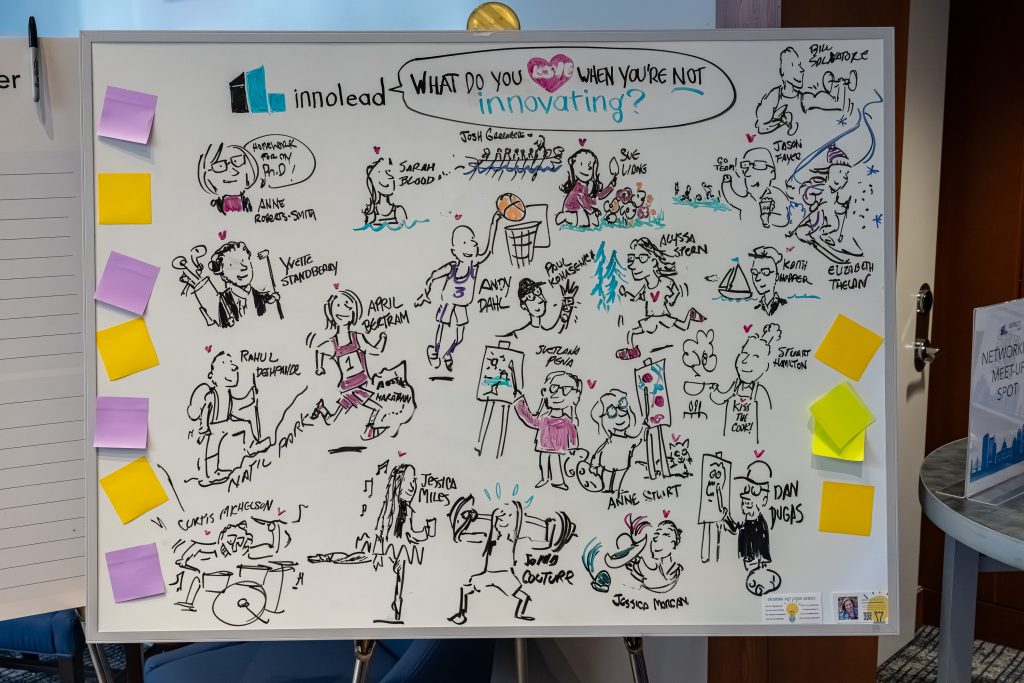 er
innolead
WHAT DO YOU LOVE WHEN YOU'RE NOT
innovating?
BILL
SALVATORE
HOMEWORK
FOR MY
Ph.D!
ANNE
ROBERTS-SMITH
SARAH
BLOOD
JOSH GREENBERG
SUE
LIDING
GO
TEAM!
JASON
FAYER
ELIZABETH
THELAN
YVETTE
STANDBERRY
APRIL
BERTRAM
AUSTIN
MARATHON
3
ANDY
DAHL
PAUL
ALYSSA
STERN
KEITH
HOPPER
RAHUL
DESHPANDE
NAT'L PARKS
1
SVETLANA
PENA
STUART
HAMILTON
KISS
THE
COOK!
ANNE STUART
DAN
DUGAS
CURTIS MICHELSON
JESSICA
MILES
COUTURE
JESSICA MORGAN
NETWORKING
MEET-UP
SPOT